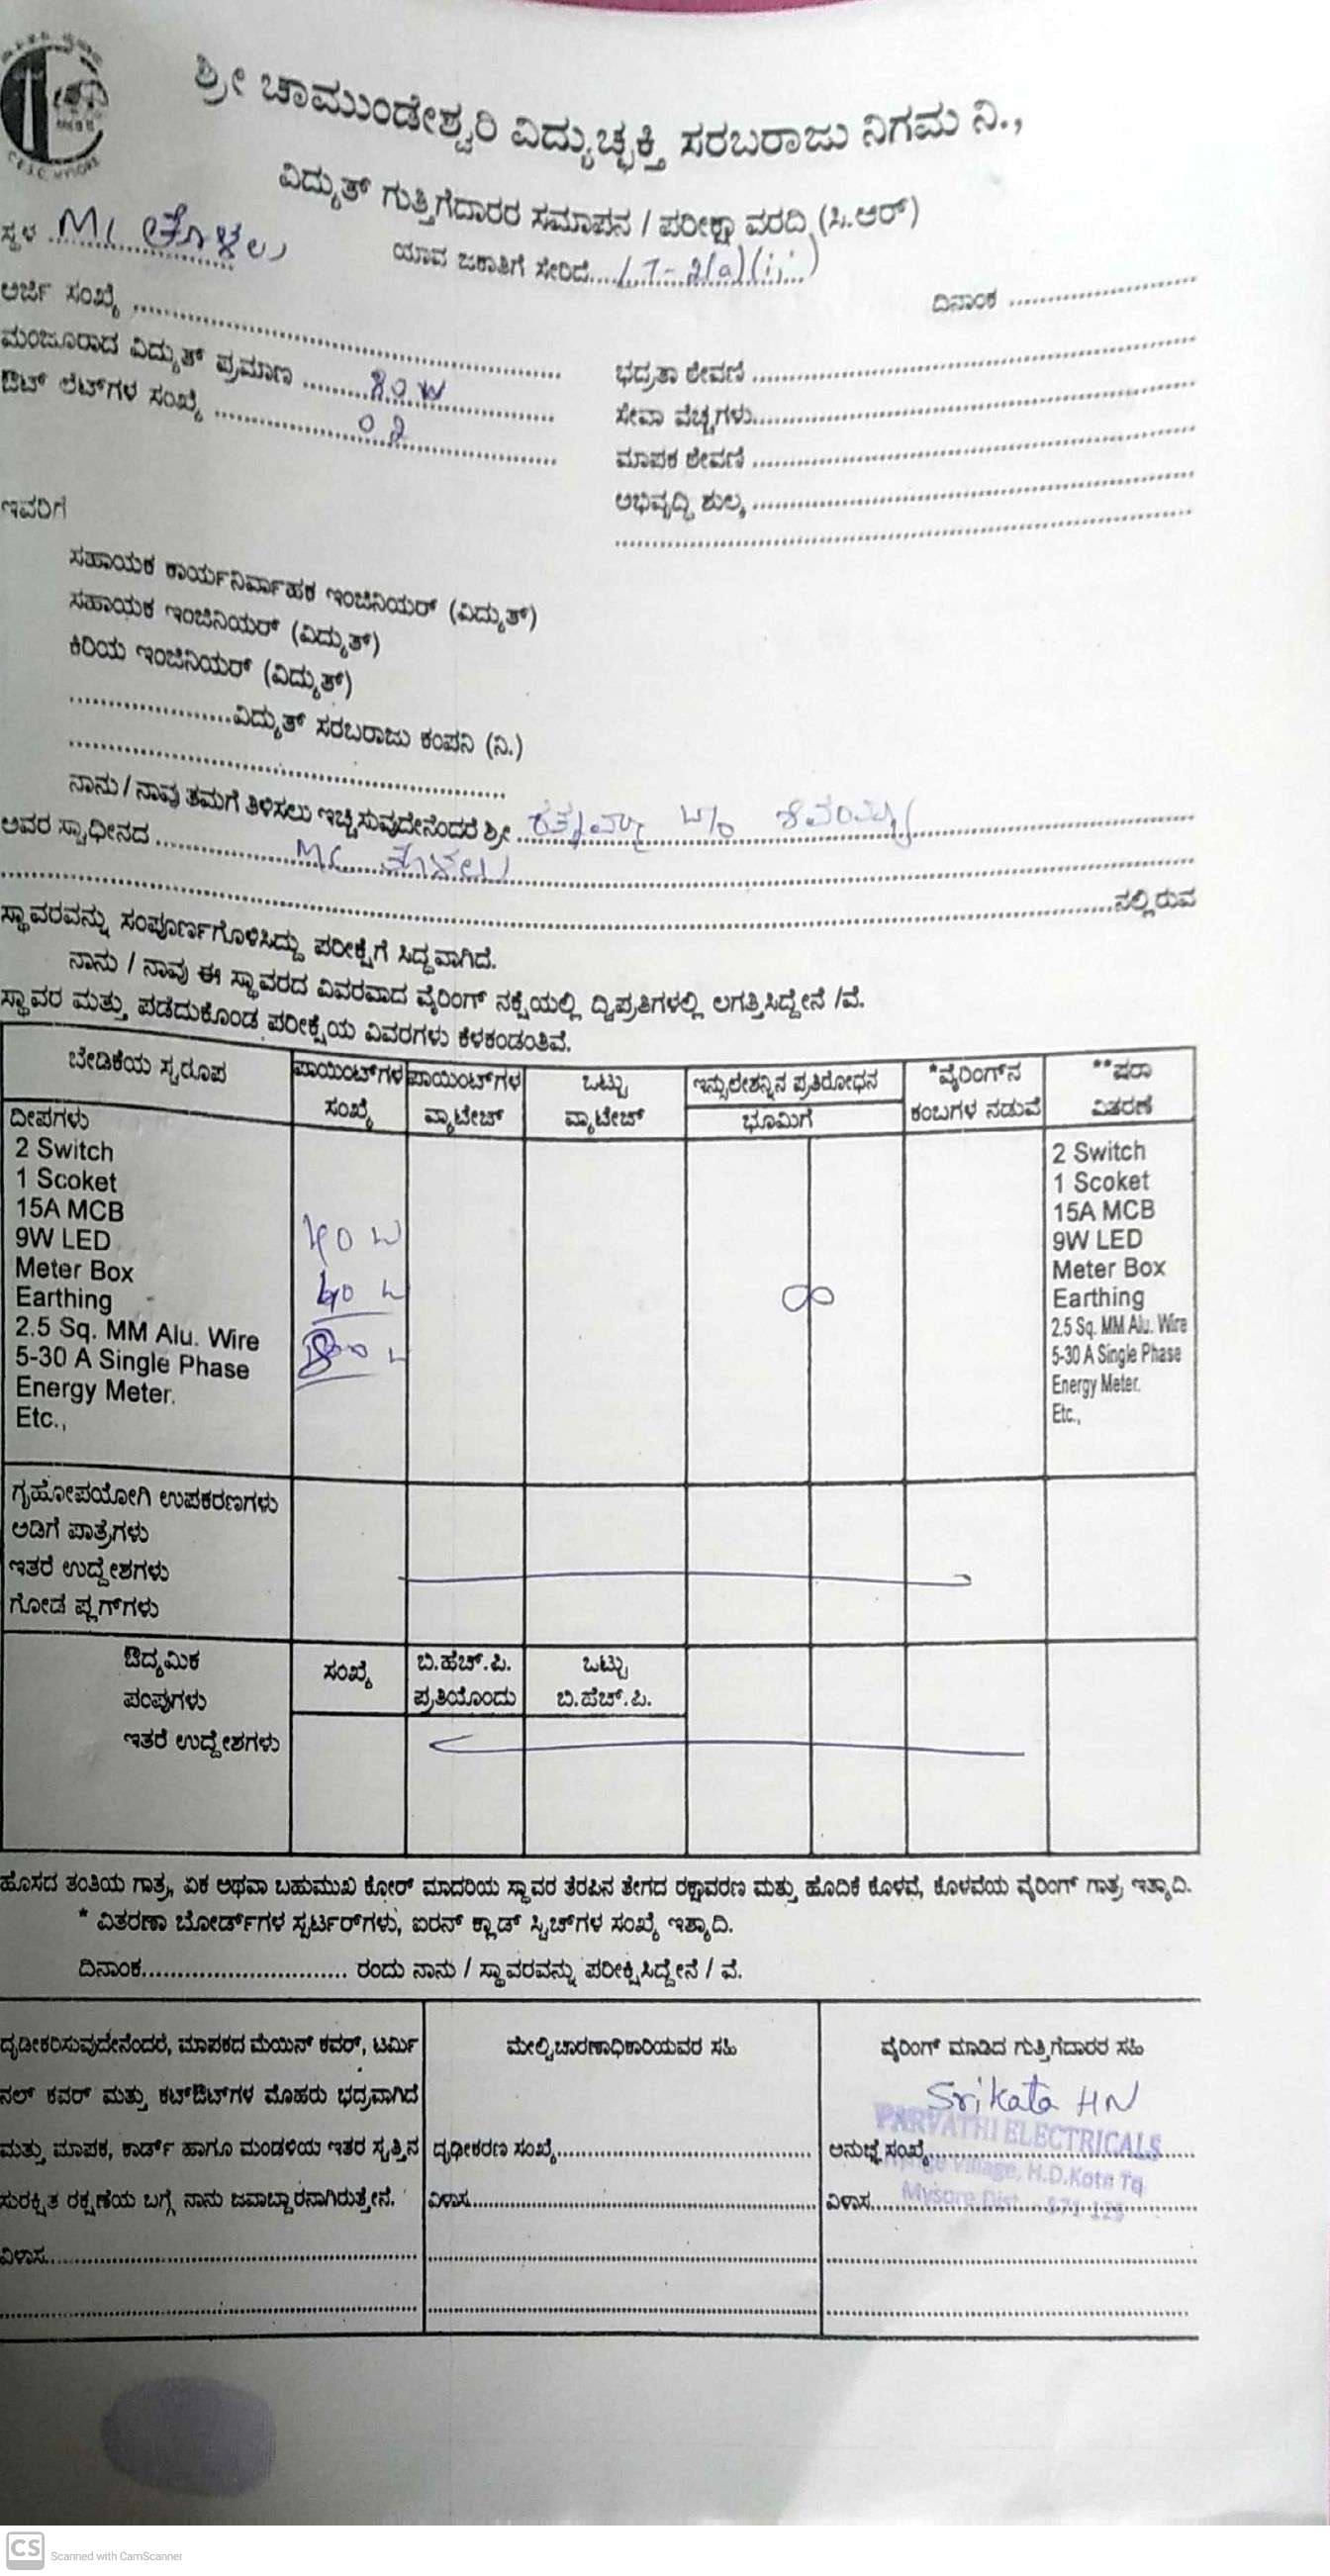 C.E.S.C. MYSORE
ಶ್ರೀ ಚಾಮುಂಡೇಶ್ವರಿ ವಿದ್ಯುಚ್ಛಕ್ತಿ ಸರಬರಾಜು ನಿಗಮ ನಿ.,
ವಿದ್ಯುತ್ ಗುತ್ತಿಗೆದಾರರ ಸಮಾಪನ / ಪರೀಕ್ಷಾ ವರದಿ (ಸಿ.ಆರ್)
ಸ್ಥಳ
ಯಾವ ಜಕಾತಿಗೆ ಸೇರಿದೆ.... LT-2(a)(ii)
ದಿನಾಂಕ
ಅರ್ಜಿ ಸಂಖ್ಯೆ
ಮಂಜೂರಾದ ವಿದ್ಯುತ್ ಪ್ರಮಾಣ 80 W
ಔಟ್ ಲೆಟ್‌ಗಳ ಸಂಖ್ಯೆ 02
ಭದ್ರತಾ ಠೇವಣಿ
ಸೇವಾ ವೆಚ್ಚಗಳು
ಮಾಪಕ ಠೇವಣಿ
ಅಭಿವೃದ್ಧಿ ಶುಲ್ಕ
ಇವರಿಗೆ
ಸಹಾಯಕ ಕಾರ್ಯನಿರ್ವಾಹಕ ಇಂಜಿನಿಯರ್ (ವಿದ್ಯುತ್)
ಸಹಾಯಕ ಇಂಜಿನಿಯರ್ (ವಿದ್ಯುತ್)
ಕಿರಿಯ ಇಂಜಿನಿಯರ್ (ವಿದ್ಯುತ್)
ವಿದ್ಯುತ್ ಸರಬರಾಜು ಕಂಪನಿ (ನಿ.)
ನಾನು / ನಾವು ತಮಗೆ ತಿಳಿಸಲು ಇಚ್ಚಿಸುವುದೇನೆಂದರೆ ಶ್ರೀ
ಅವರ ಸ್ವಾಧೀನದ
ನಲ್ಲಿರುವ
ಸ್ಥಾವರವನ್ನು ಸಂಪೂರ್ಣಗೊಳಿಸಿದ್ದು ಪರೀಕ್ಷೆಗೆ ಸಿದ್ಧವಾಗಿದೆ.
ನಾನು / ನಾವು ಈ ಸ್ಥಾವರದ ವಿವರವಾದ ವೈರಿಂಗ್ ನಕ್ಷೆಯಲ್ಲಿ ದ್ವಿಪ್ರತಿಗಳಲ್ಲಿ ಲಗತ್ತಿಸಿದ್ದೇನೆ /ವೆ.
ಸ್ಥಾವರ ಮತ್ತು ಪಡೆದುಕೊಂಡ ಪರೀಕ್ಷೆಯ ವಿವರಗಳು ಕೆಳಕಂಡಂತಿವೆ.
ಬೇಡಿಕೆಯ ಸ್ವರೂಪ
ಪಾಯಿಂಟ್‌ಗಳ ಸಂಖ್ಯೆ
ಪಾಯಿಂಟ್‌ಗಳ ವ್ಯಾಟೇಜ್
ಒಟ್ಟು ವ್ಯಾಟೇಜ್
ಇನ್ಸುಲೇಶನ್ನಿನ ಪ್ರತಿರೋಧನ
ಭೂಮಿಗೆ
*ವೈರಿಂಗ್‌ನ ಕಂಬಗಳ ನಡುವೆ
**ಷರಾ ವಿತರಣೆ
ದೀಪಗಳು
2 Switch
1 Scoket
15A MCB
9W LED
Meter Box
Earthing
2.5 Sq. MM Alu. Wire
5-30 A Single Phase
Energy Meter.
Etc.,
40 W
40 W
∞
2 Switch
1 Scoket
15A MCB
9W LED
Meter Box
Earthing
2.5 Sq. MM Alu. Wire
5-30 A Single Phase
Energy Meter.
Etc.,
ಗೃಹೋಪಯೋಗಿ ಉಪಕರಣಗಳು
ಅಡಿಗೆ ಪಾತ್ರೆಗಳು
ಇತರೆ ಉದ್ದೇಶಗಳು
ಗೋಡೆ ಪ್ಲಗ್‌ಗಳು
ಔದ್ಯಮಿಕ
ಪಂಪುಗಳು
ಇತರೆ ಉದ್ದೇಶಗಳು
ಸಂಖ್ಯೆ
ಬಿ.ಹೆಚ್.ಪಿ. ಪ್ರತಿಯೊಂದು
ಒಟ್ಟು ಬಿ.ಹೆಚ್.ಪಿ.
ಹೊಸದ ತಂತಿಯ ಗಾತ್ರ, ಏಕ ಅಥವಾ ಬಹುಮುಖ ಕೋರ್ ಮಾದರಿಯ ಸ್ಥಾವರ ತೆರಪಿನ ತೇಗದ ರಕ್ಷಾವರಣ ಮತ್ತು ಹೊದಿಕೆ ಕೊಳವೆ, ಕೊಳವೆಯ ವೈರಿಂಗ್ ಗಾತ್ರ ಇತ್ಯಾದಿ.
* ವಿತರಣಾ ಬೋರ್ಡ್‌ಗಳ ಸ್ಟರ್ಟರ್‌ಗಳು, ಐರನ್ ಕ್ಲಾಡ್ ಸ್ವಿಚ್‌ಗಳ ಸಂಖ್ಯೆ ಇತ್ಯಾದಿ.
ದಿನಾಂಕ............................. ರಂದು ನಾನು / ಸ್ಥಾವರವನ್ನು ಪರೀಕ್ಷಿಸಿದ್ದೇನೆ / ವೆ.
ದೃಢೀಕರಿಸುವುದೇನೆಂದರೆ, ಮಾಪಕದ ಮೆಯಿನ್ ಕವರ್, ಟರ್ಮಿ
ನಲ್ ಕವರ್ ಮತ್ತು ಕಟ್‌ಔಟ್‌ಗಳ ಮೊಹರು ಭದ್ರವಾಗಿದೆ
ಮತ್ತು ಮಾಪಕ, ಕಾರ್ಡ್ ಹಾಗೂ ಮಂಡಳಿಯ ಇತರ ಸ್ವತ್ತಿನ
ಸುರಕ್ಷಿತ ರಕ್ಷಣೆಯ ಬಗ್ಗೆ ನಾನು ಜವಾಬ್ದಾರನಾಗಿರುತ್ತೇನೆ.
ವಿಳಾಸ
ಮೇಲ್ವಿಚಾರಣಾಧಿಕಾರಿಯವರ ಸಹಿ
ದೃಢೀಕರಣ ಸಂಖ್ಯೆ
ವಿಳಾಸ
ವೈರಿಂಗ್ ಮಾಡಿದ ಗುತ್ತಿಗೆದಾರರ ಸಹಿ
Srikata HN
PARVATHI ELECTRICALS
ಅನುಜ್ಞೆ ಸಂಖ್ಯೆ
Village, H.D.Kote Tq
ವಿಳಾಸ
Mysore Dist - 571 125
CS Scanned with CamScanner